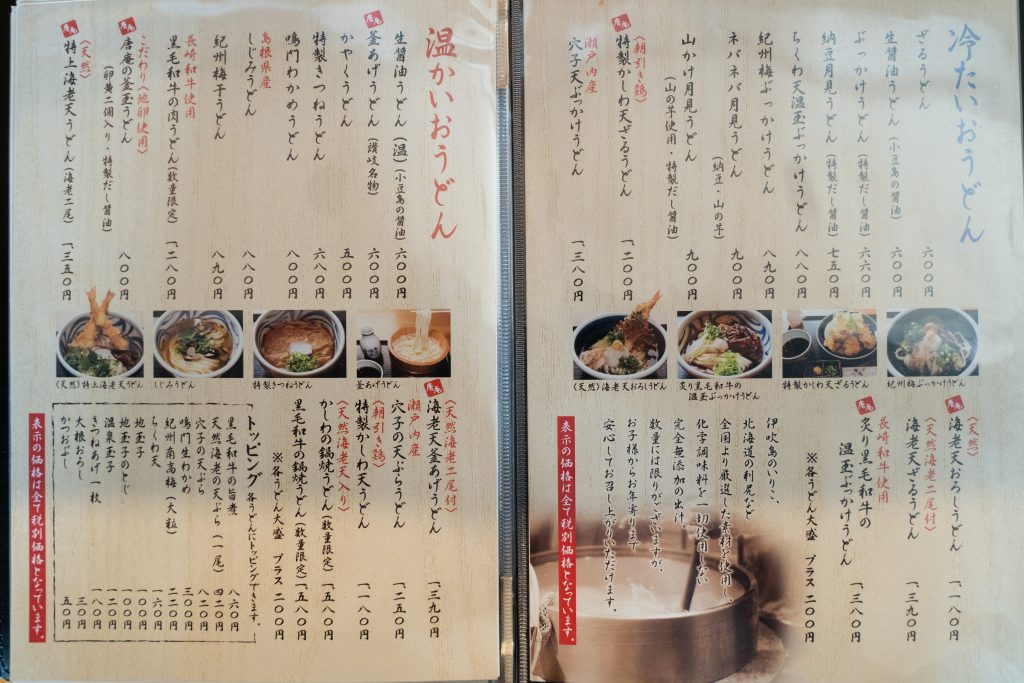 冷たいおうどん
ざるうどん 六〇〇円
生醤油うどん（小豆島の醤油）六〇〇円
ぶっかけうどん（特製だし醤油）六六〇円
納豆月見うどん（特製だし醤油）七五〇円
ちくわ天温玉ぶっかけうどん 八八〇円
紀州梅ぶっかけうどん 八九〇円
ネバネバ月見うどん（納豆・山の芋）九〇〇円
山かけ月見うどん（山の芋使用・特製だし醤油）九〇〇円
〈朝引き鶏〉
唐庵
特製かしわ天ざるうどん 一、二〇〇円
瀬戸内産
穴子天ぶっかけうどん 一、三八〇円
紀州梅ぶっかけうどん
特製かしわ天ざるうどん
炙り黒毛和牛の
温玉ぶっかけうどん
〈天然〉海老天おろしうどん
〈天然〉
唐庵
海老天おろしうどん 一、一八〇円
〈天然海老二尾付〉
海老天ざるうどん 一、三九〇円
長崎和牛使用
炙り黒毛和牛の
温玉ぶっかけうどん 一、三八〇円
※各うどん大盛 プラス 二〇〇円
伊吹島のいりこ、
北海道の利尻など
全国より厳選した素材を使用し、
化学調味料を一切使用しない
完全無添加の出汁。
数量には限りがございますが、
お子様からお年寄りまで
安心してお召し上がりいただけます。
表示の価格は全て税別価格となっています。
温かいおうどん
生醤油うどん（温）（小豆島の醤油）六〇〇円
唐庵
釜あげうどん（讃岐名物）六〇〇円
かやくうどん 五〇〇円
特製きつねうどん 六八〇円
鳴門わかめうどん 八〇〇円
島根県産
しじみうどん 八八〇円
紀州梅干うどん 八九〇円
長崎和牛使用
黒毛和牛の肉うどん（数量限定）一、二八〇円
こだわり〈地卵使用〉
唐庵
唐庵の釜玉うどん 八〇〇円
（卵黄二個入り・特製だし醤油）
〈天然〉
唐庵
特上海老天うどん（海老二尾）一、三五〇円
釜あげうどん
特製きつねうどん
しじみうどん
〈天然〉特上海老天うどん
〈天然海老二尾付〉
唐庵
海老天釜あげうどん 一、三九〇円
瀬戸内産
穴子の天ぷらうどん 一、二五〇円
〈朝引き鶏〉
特製かしわ天うどん 一、一八〇円
〈天然海老天入り〉
かしわの鍋焼うどん（数量限定）一、五八〇円
黒毛和牛の鍋焼うどん（数量限定）一、五八〇円
※各うどん大盛 プラス 二〇〇円
トッピング 各うどんにトッピングできます。
黒毛和牛の旨煮 八六〇円
天然海老の天ぷら（一尾）四二〇円
穴子の天ぷら 八二〇円
鳴門生わかめ 三〇〇円
紀州南高梅（大粒）二二〇円
ちくわ天 一六〇円
地玉子 一〇〇円
地玉子のとじ 一五〇円
温泉玉子 一二〇円
きつねあげ一枚 一八〇円
大根おろし 三〇円
かつおぶし 五〇円
表示の価格は全て税別価格となっています。